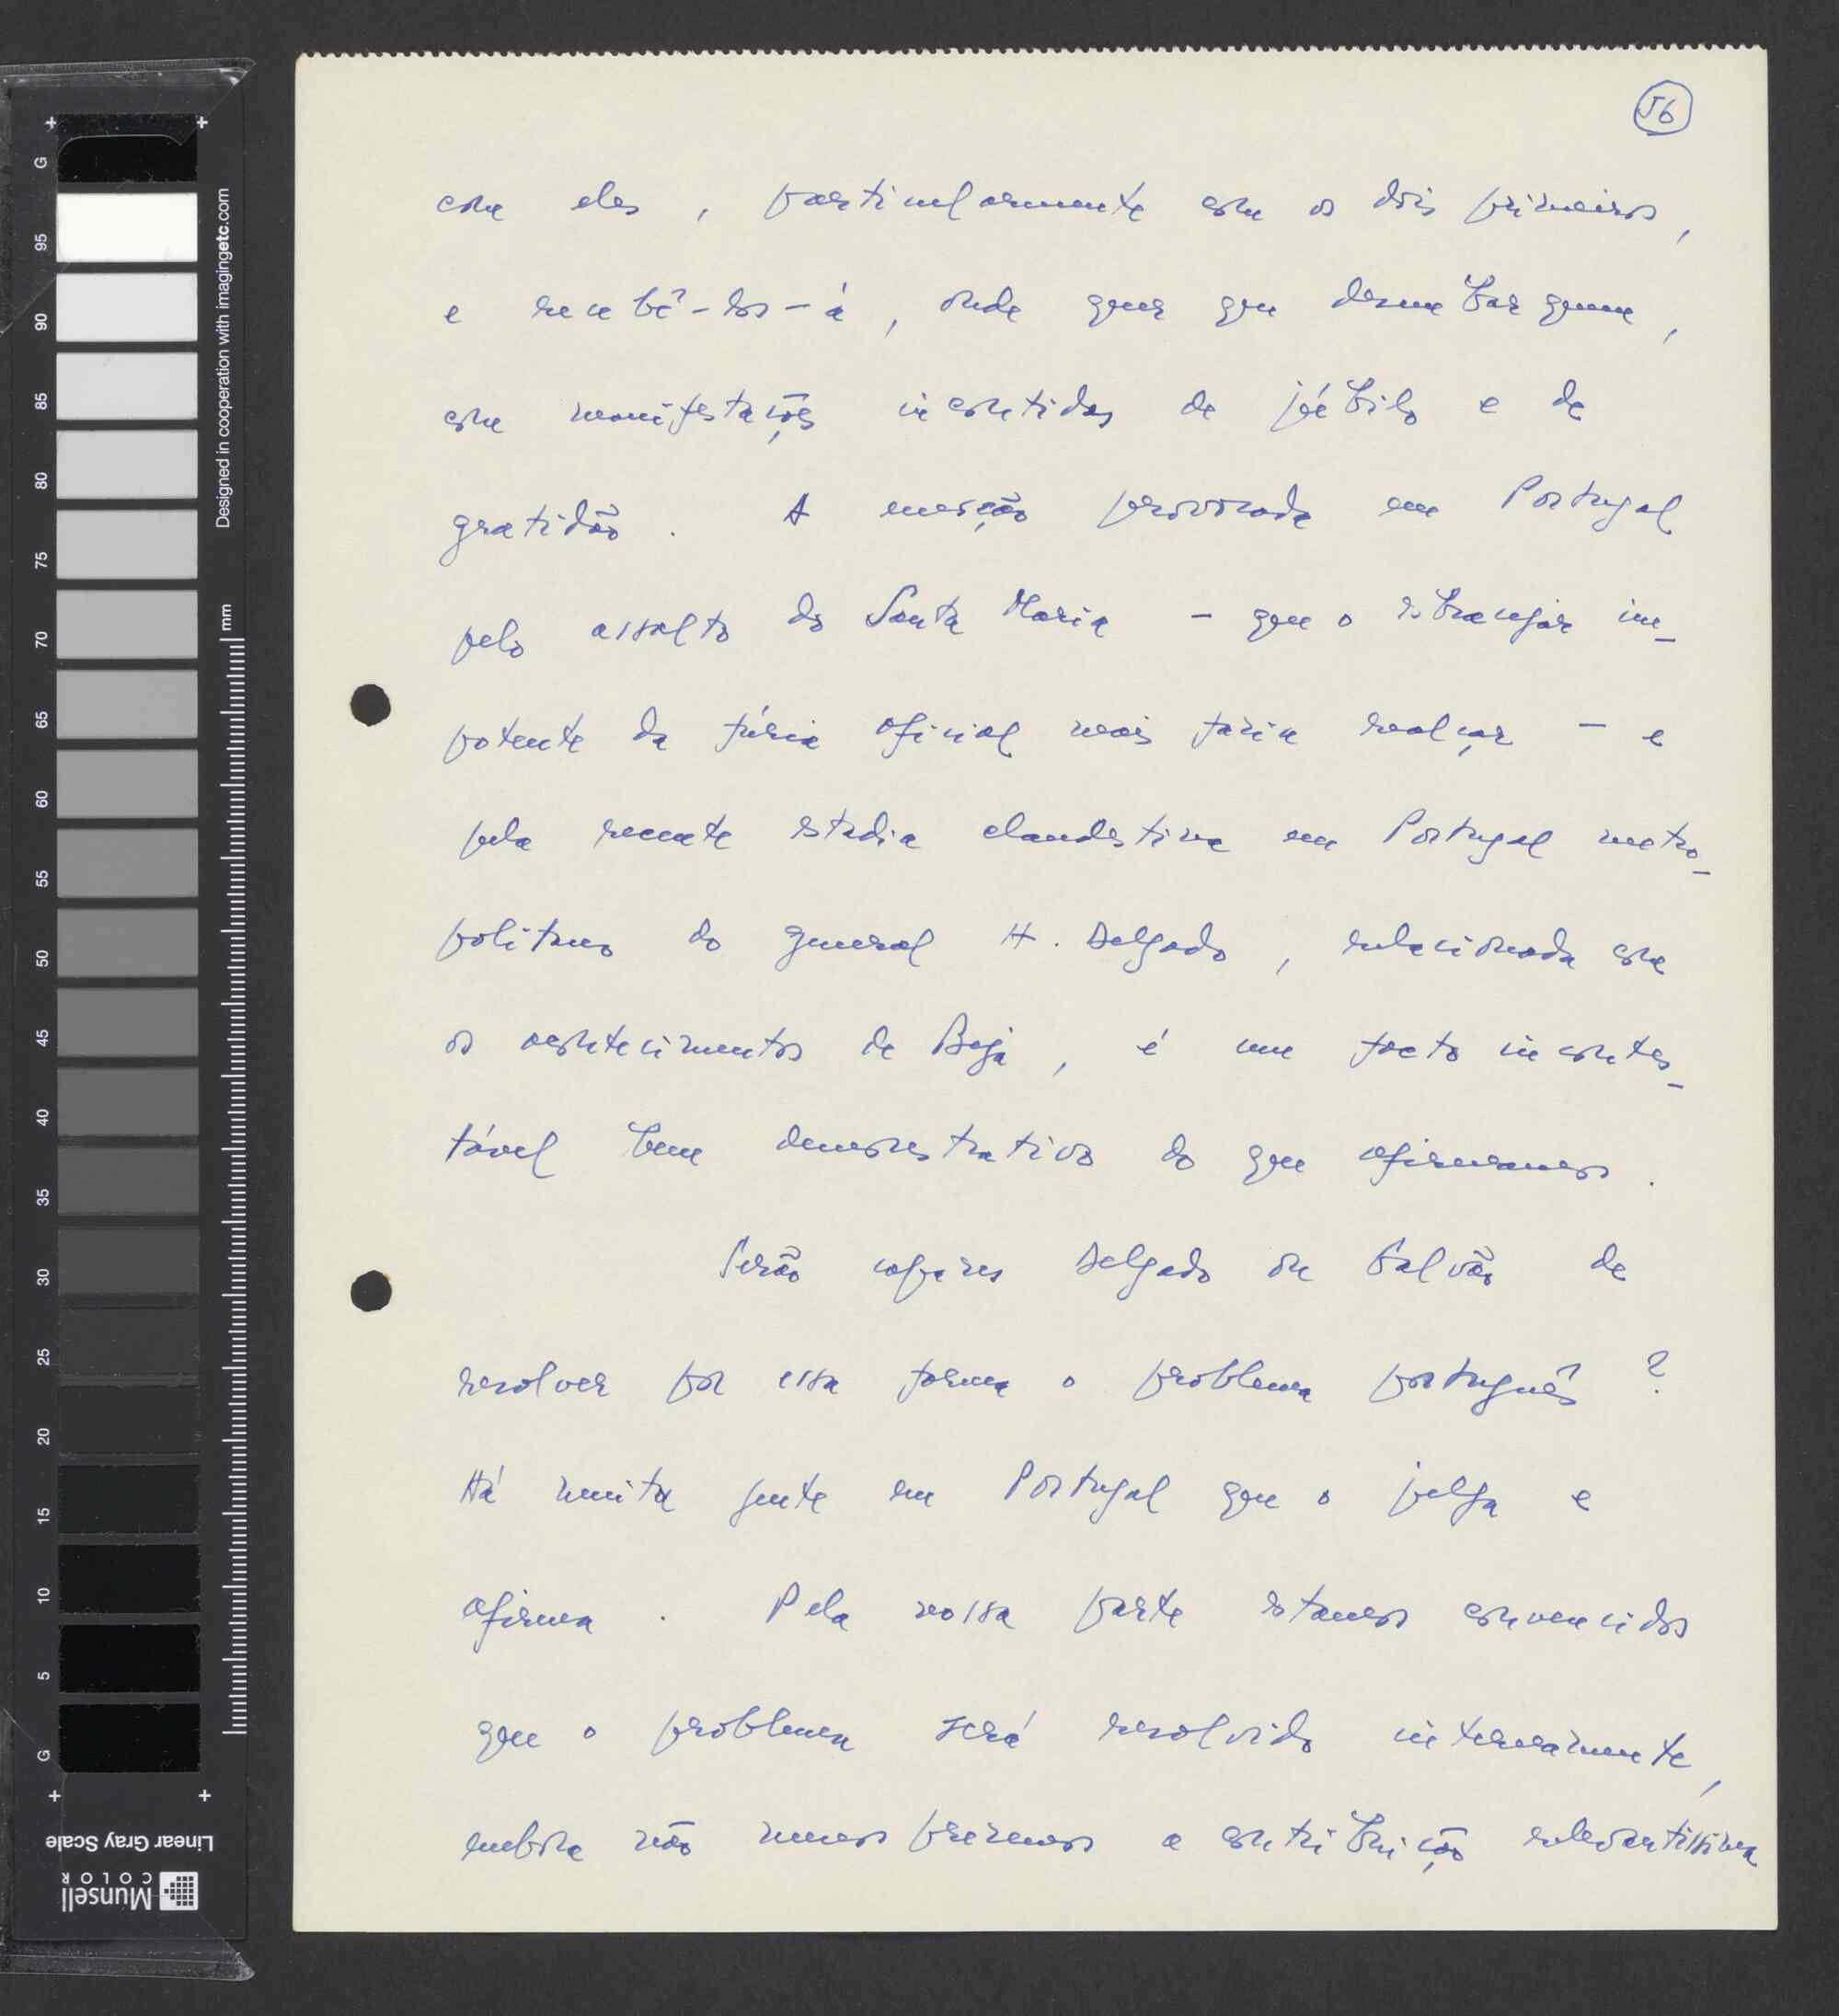 56
com eles, particularmente com os dois primeiros,
e recebê-los-á, onde quer que desembarquem,
com manifestações incontidas de júbilo e de
gratidão. A emoção provocada em Portugal
pelo assalto do Santa Maria - que o estrebuchar im-
potente da fúria oficial mais faria realçar - e
pela recente estadia clandestina em Portugal metro-
politano do general H. Delgado, relacionada com
os acontecimentos de Beja, é um facto incontes-
tável bem demonstrativo do que afirmamos.
Serão capazes Delgado ou Galvão de
resolver por essa forma o problema português?
Há muita gente em Portugal que o julga e
afirma. Pela nossa parte estamos convencidos
que o problema será resolvido internamente,
embora não menosprezemos a contribuição relevantíssima
G 95 90 85 80 75 70 65 60 55 50 45 40 35 30 25 20 15 10 5 G
mm
Designed in cooperation with imagingetc.com
Munsell COLOR
Linear Gray Scale